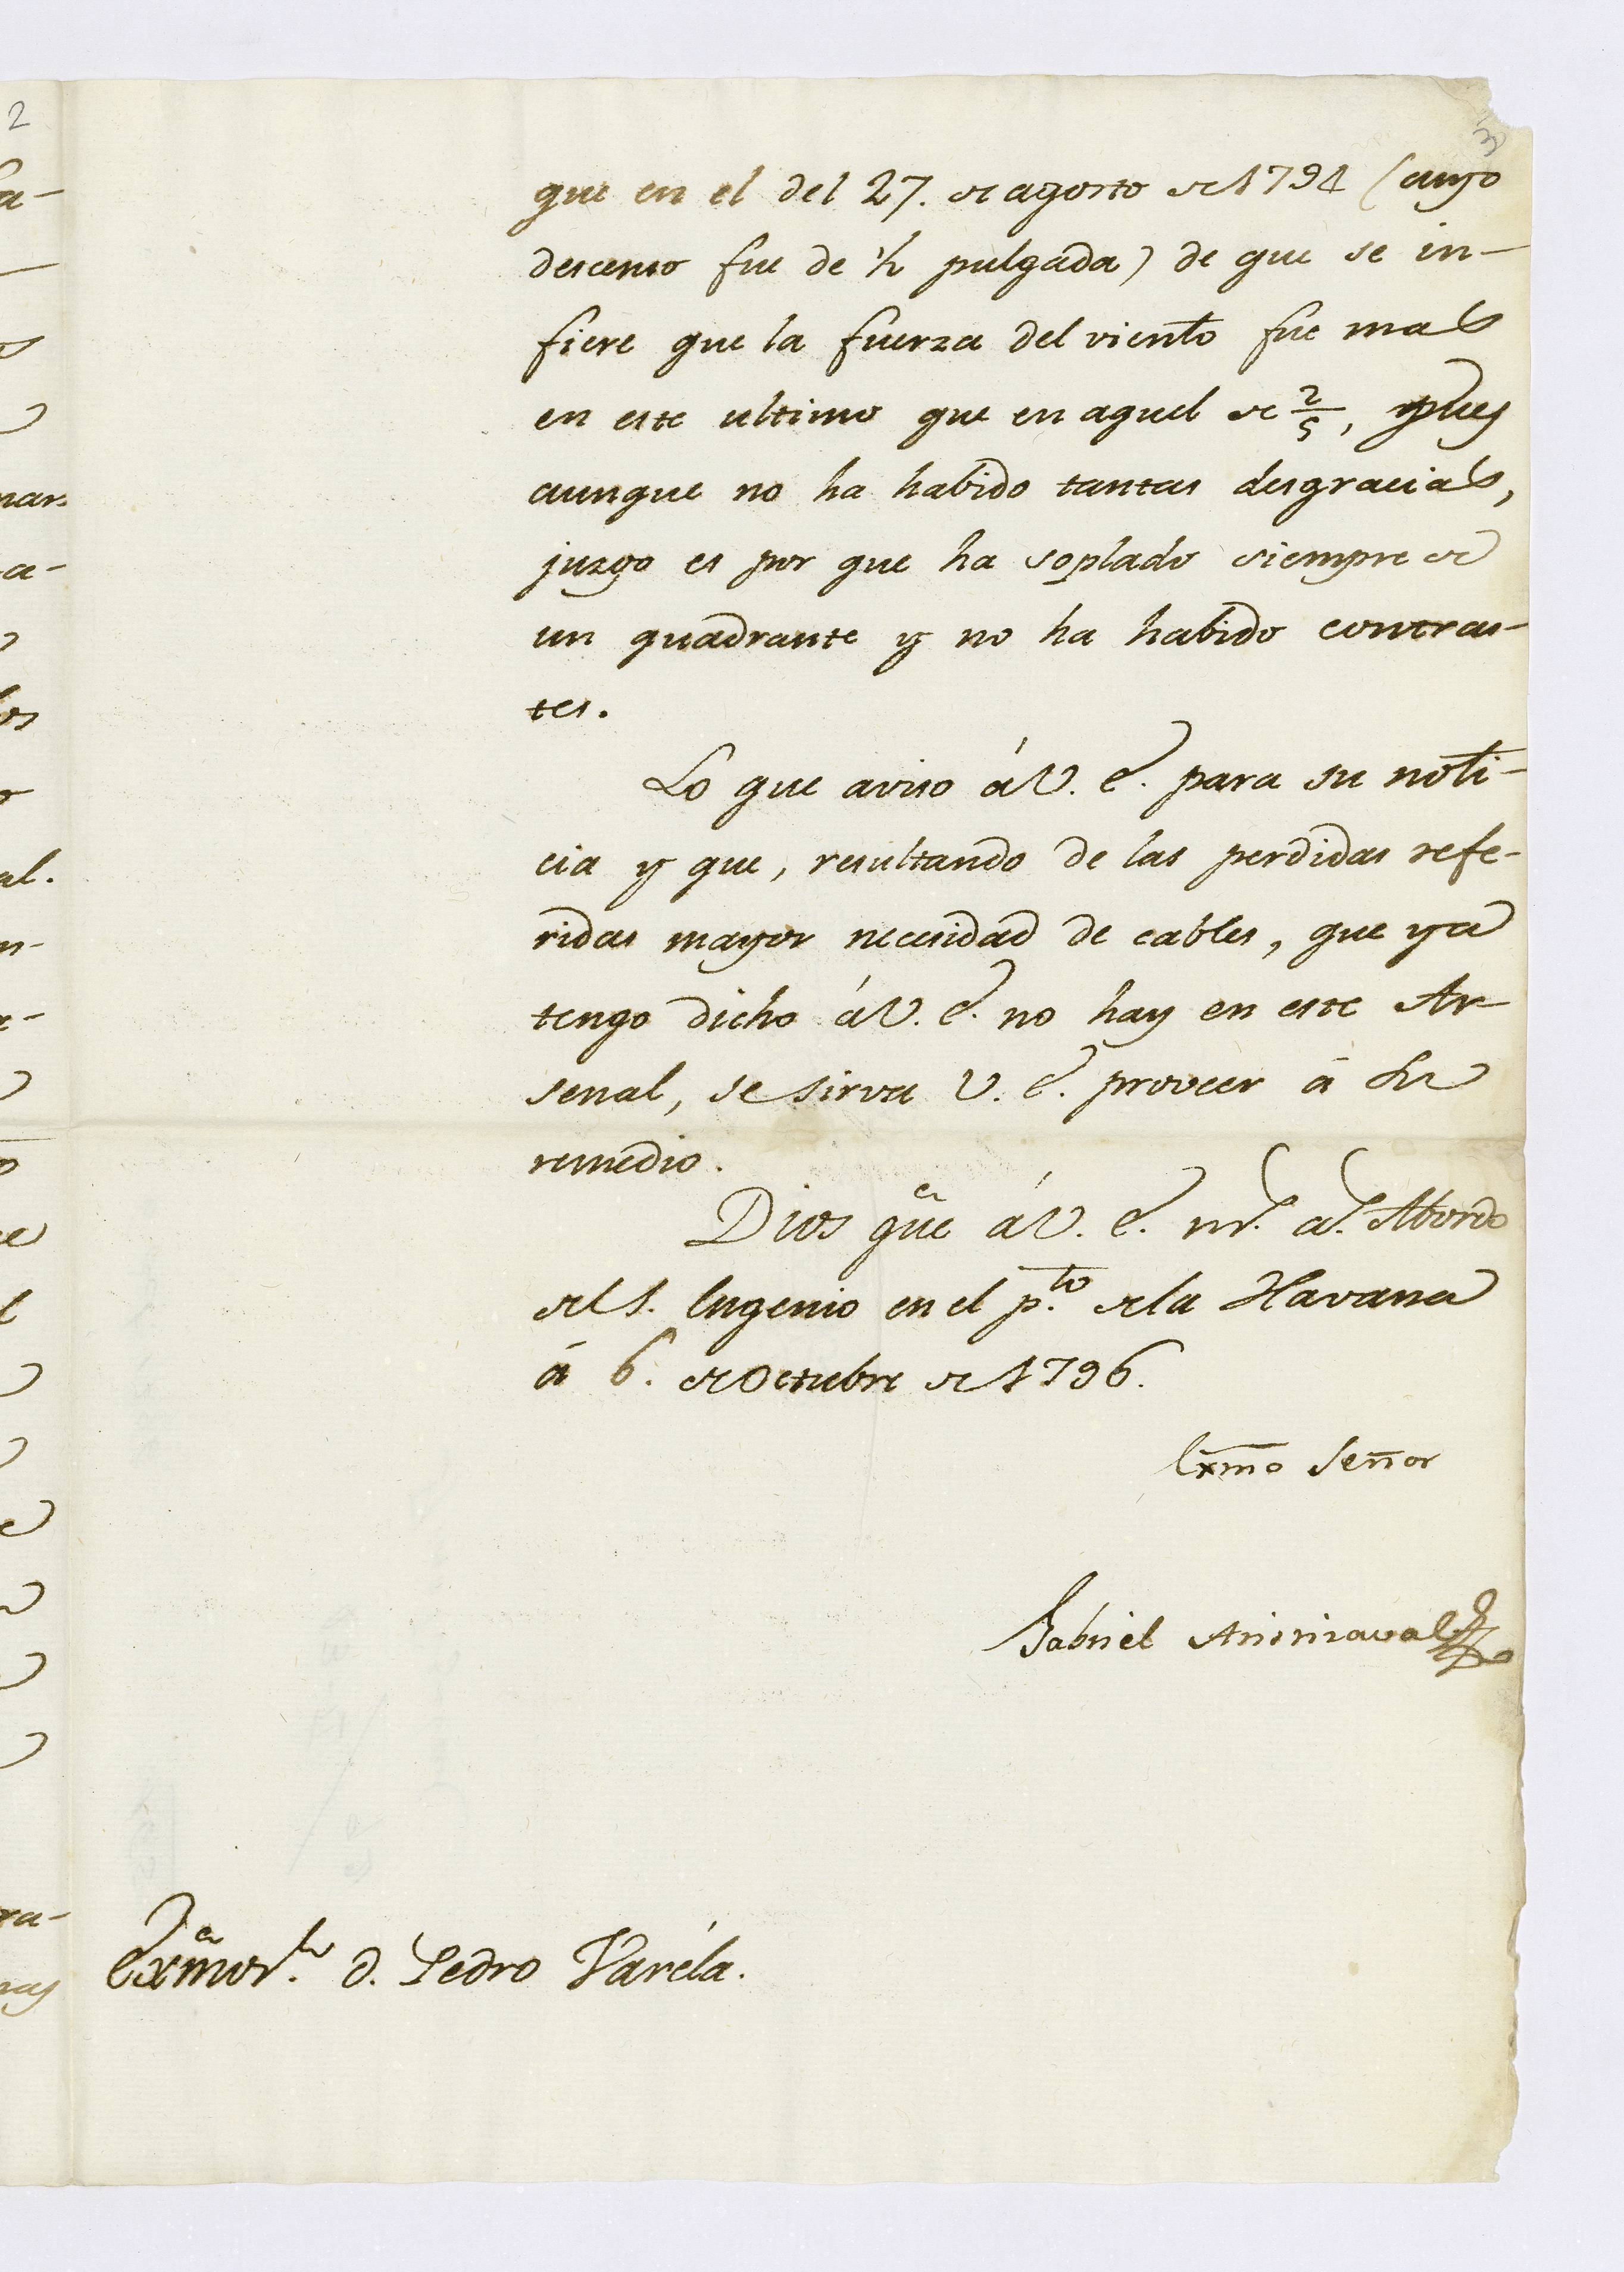 2
3
que en el del 27. de agosto de 1794 (cuyo
descenso fue de ½ pulgada) de que se in-
fiere que la fuerza del viento fue mas
en este ultimo que en aquel de 2/5, pues
aunque no ha habido tantas desgracias,
juzgo es por que ha soplado siempre de
un quadrante y no ha habido contras-
tes.
Lo que aviso á V. E. para su noti-
cia y que, resultando de las perdidas refe-
ridas mayor necesidad de cables, que ya
tengo dicho á V. E. no hay en este Ar-
senal, se sirva V. E. proveer á su
remedio.
Dios gue á V. E. ms. as. Abordo
del S. Eugenio en el pto. de la Havana
á 6. de Octubre de 1796.
Exmo Señor
Gabriel Aristizaval
Exmo Sr. D. Pedro Varéla.